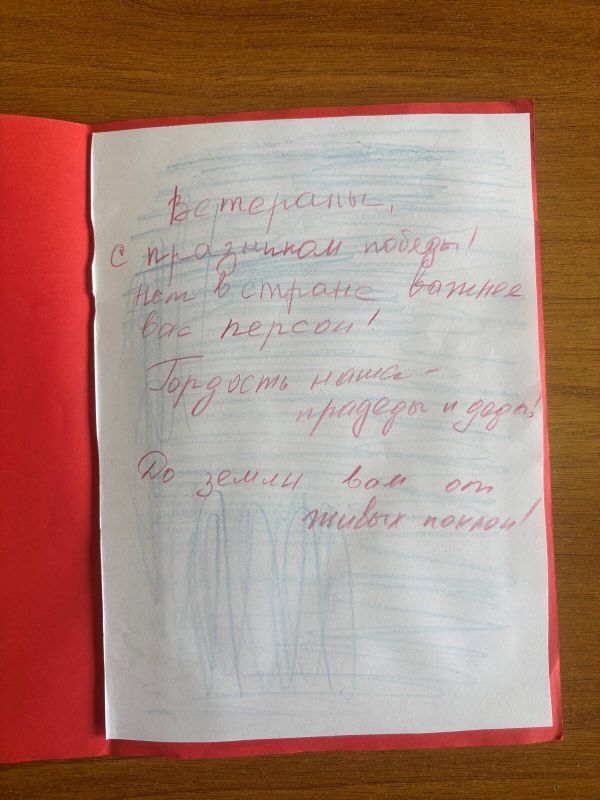 Ветераны,
с празником победы!
нет в стране важнее
вас персон!
Гордость наша -
прадеды и деды!
До земли вам от
живых поклон!